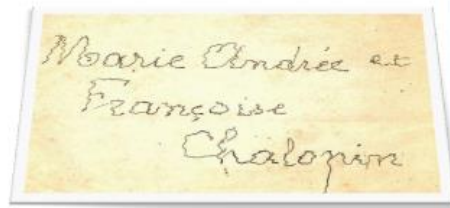 Marie Andrée et
Françoise
Chalopin